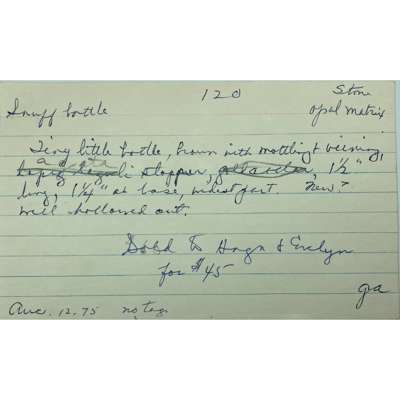 120
Stone
Snuff bottle
opal matrix
Tiny little bottle, brown with mottling & veining,
agate
stopper, 1½"
long, 1¼" at base, widest part. New?
well hollowed out.
Sold to & Evelyn
for $45
Auc. 12.75 no tag